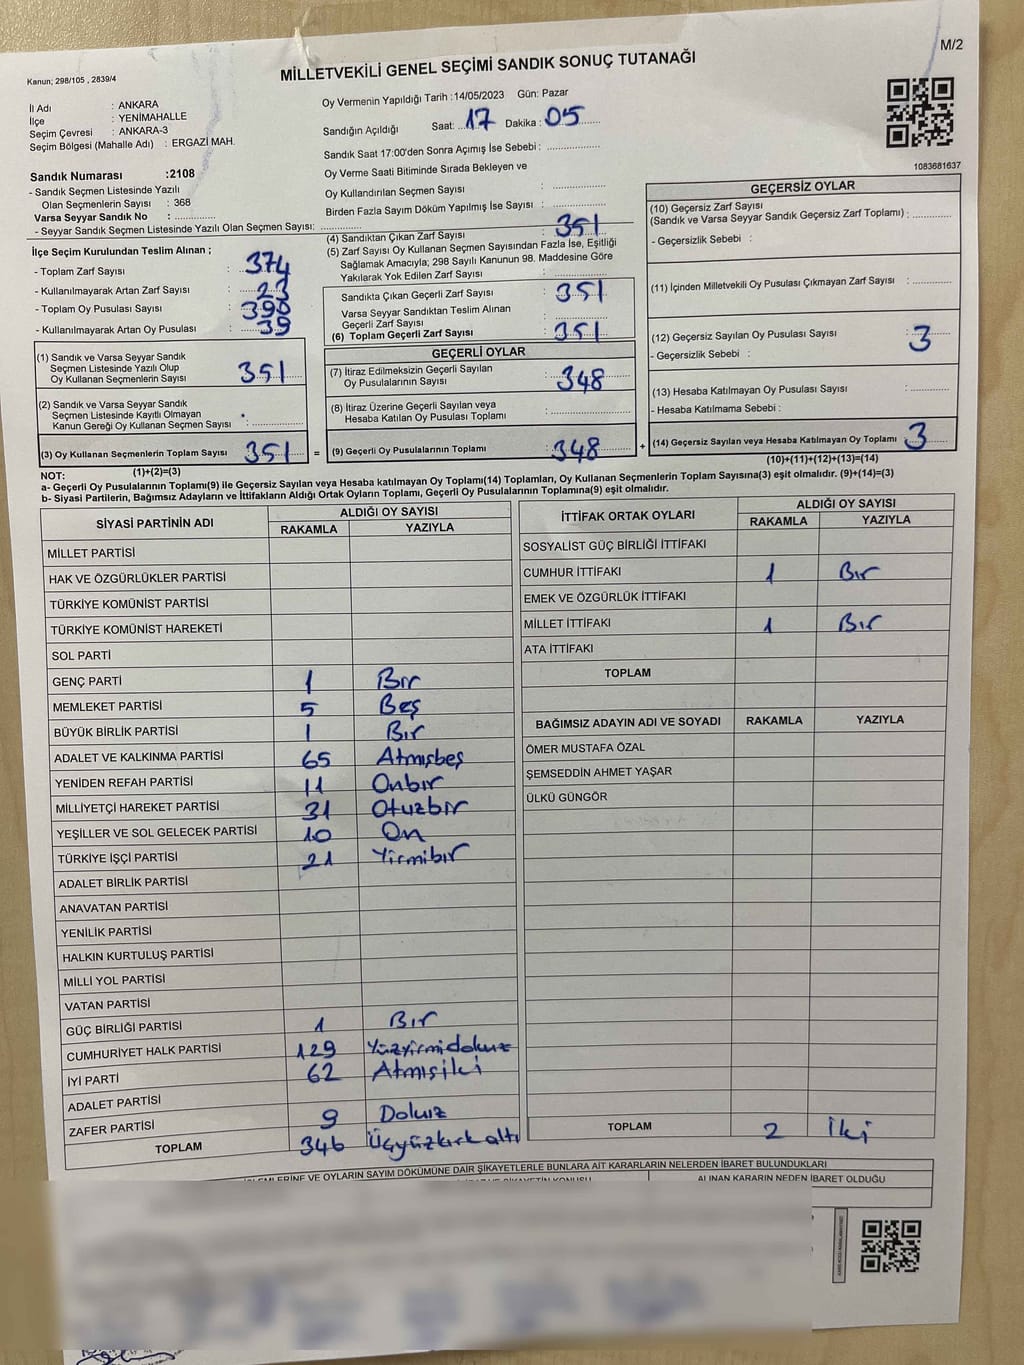 M/2
Kanun; 298/105 , 2839/4
MİLLETVEKİLİ GENEL SEÇİMİ SANDIK SONUÇ TUTANAĞI
İl Adı : ANKARA
İlçe : YENİMAHALLE
Seçim Çevresi : ANKARA-3
Seçim Bölgesi (Mahalle Adı) : ERGAZİ MAH.
Sandık Numarası :2108
- Sandık Seçmen Listesinde Yazılı
Olan Seçmenlerin Sayısı : 368
Varsa Seyyar Sandık No : ..............
- Seyyar Sandık Seçmen Listesinde Yazılı Olan Seçmen Sayısı: ..............
Oy Vermenin Yapıldığı Tarih :14/05/2023 Gün: Pazar
Sandığın Açıldığı Saat: 17 Dakika : 05
Sandık Saat 17:00'den Sonra Açımış İse Sebebi : ..............
Oy Verme Saati Bitiminde Sırada Bekleyen ve
Oy Kullandırılan Seçmen Sayısı : ..............
Birden Fazla Sayım Döküm Yapılmış İse Sayısı : ..............
1083681637
İlçe Seçim Kurulundan Teslim Alınan ;
- Toplam Zarf Sayısı : 374
- Kullanılmayarak Artan Zarf Sayısı : 23
- Toplam Oy Pusulası Sayısı : 390
- Kullanılmayarak Artan Oy Pusulası : 39
(1) Sandık ve Varsa Seyyar Sandık
Seçmen Listesinde Yazılı Olup
Oy Kullanan Seçmenlerin Sayısı : 351
(2) Sandık ve Varsa Seyyar Sandık
Seçmen Listesinde Kayıtlı Olmayan
Kanun Gereği Oy Kullanan Seçmen Sayısı : ..............
(3) Oy Kullanan Seçmenlerin Toplam Sayısı : 351 =
(1)+(2)=(3)
(4) Sandıktan Çıkan Zarf Sayısı : 351
(5) Zarf Sayısı Oy Kullanan Seçmen Sayısından Fazla İse, Eşitliği
Sağlamak Amacıyla; 298 Sayılı Kanunun 98. Maddesine Göre
Yakılarak Yok Edilen Zarf Sayısı : ..............
Sandıkta Çıkan Geçerli Zarf Sayısı : 351
Varsa Seyyar Sandıktan Teslim Alınan
Geçerli Zarf Sayısı : ..............
(6) Toplam Geçerli Zarf Sayısı : 351
GEÇERLİ OYLAR
(7) İtiraz Edilmeksizin Geçerli Sayılan
Oy Pusulalarının Sayısı : 348
(8) İtiraz Üzerine Geçerli Sayılan veya
Hesaba Katılan Oy Pusulası Toplamı : ..............
(9) Geçerli Oy Pusulalarının Toplamı : 348 +
GEÇERSİZ OYLAR
(10) Geçersiz Zarf Sayısı
(Sandık ve Varsa Seyyar Sandık Geçersiz Zarf Toplamı) : ..............
- Geçersizlik Sebebi :
(11) İçinden Milletvekili Oy Pusulası Çıkmayan Zarf Sayısı : ..............
(12) Geçersiz Sayılan Oy Pusulası Sayısı : 3
- Geçersizlik Sebebi :
(13) Hesaba Katılmayan Oy Pusulası Sayısı : ..............
- Hesaba Katılmama Sebebi :
(14) Geçersiz Sayılan veya Hesaba Katılmayan Oy Toplamı : 3
(10)+(11)+(12)+(13)=(14)
NOT:
a- Geçerli Oy Pusulalarının Toplamı(9) ile Geçersiz Sayılan veya Hesaba katılmayan Oy Toplamı(14) Toplamları, Oy Kullanan Seçmenlerin Toplam Sayısına(3) eşit olmalıdır. (9)+(14)=(3)
b- Siyasi Partilerin, Bağımsız Adayların ve İttifakların Aldığı Ortak Oyların Toplamı, Geçerli Oy Pusulalarının Toplamına(9) eşit olmalıdır.
SİYASİ PARTİNİN ADI ALDIĞI OY SAYISI
RAKAMLA YAZIYLA
MİLLET PARTİSİ
HAK VE ÖZGÜRLÜKLER PARTİSİ
TÜRKİYE KOMÜNİST PARTİSİ
TÜRKİYE KOMÜNİST HAREKETİ
SOL PARTİ
GENÇ PARTİ 1 Bir
MEMLEKET PARTİSİ 5 Beş
BÜYÜK BİRLİK PARTİSİ 1 Bir
ADALET VE KALKINMA PARTİSİ 65 Atmışbeş
YENİDEN REFAH PARTİSİ 11 Onbir
MİLLİYETÇİ HAREKET PARTİSİ 31 Otuzbir
YEŞİLLER VE SOL GELECEK PARTİSİ 10 On
TÜRKİYE İŞÇİ PARTİSİ 21 Yirmibir
ADALET BİRLİK PARTİSİ
ANAVATAN PARTİSİ
YENİLİK PARTİSİ
HALKIN KURTULUŞ PARTİSİ
MİLLİ YOL PARTİSİ
VATAN PARTİSİ
GÜÇ BİRLİĞİ PARTİSİ 1 Bir
CUMHURİYET HALK PARTİSİ 129 Yüzyirmidokuz
İYİ PARTİ 62 Atmışiki
ADALET PARTİSİ
ZAFER PARTİSİ 9 Dokuz
TOPLAM 346 Üçyüzkırkaltı
İTTİFAK ORTAK OYLARI ALDIĞI OY SAYISI
RAKAMLA YAZIYLA
SOSYALİST GÜÇ BİRLİĞİ İTTİFAKI
CUMHUR İTTİFAKI 1 Bir
EMEK VE ÖZGÜRLÜK İTTİFAKI
MİLLET İTTİFAKI 1 Bir
ATA İTTİFAKI
TOPLAM
BAĞIMSIZ ADAYIN ADI VE SOYADI RAKAMLA YAZIYLA
ÖMER MUSTAFA ÖZAL
ŞEMSEDDİN AHMET YAŞAR
ÜLKÜ GÜNGÖR
TOPLAM 2 İki
VE OYLARIN SAYIM DÖKÜMÜNE DAİR ŞİKAYETLERLE BUNLARA AİT KARARLARIN NELERDEN İBARET BULUNDUKLARI
ALINAN KARARIN NEDEN İBARET OLDUĞU